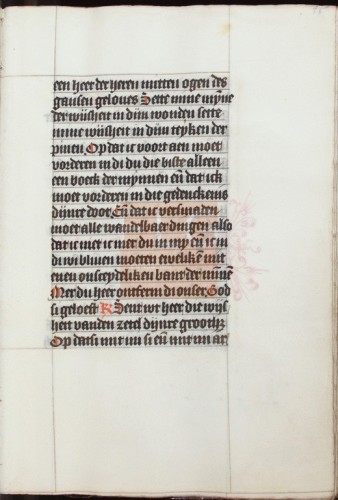 een heer der heren mitten ogen des
gansen geloves Sette mine mȳne
der wijsheit in dijn wonden sette
mine wijsheit in dijn teyken der
pinen Op dat ic voort aen moet
vorderen in di du die biste alleen
een boeck der mynnen eñ dat ick
moet vorderen in die gedenckenis
dijnre doot Eñ dat ic versmaden
moet alle wandelbaer dingen also
dat ic niet ic mer du in my eñ ic in
di wi bliuen moeten ewelikē mit
enen onsceydeliken bant der mīnē
Mer du heer ontferm di onser God
si geloeft Sent wt heer die wijs
heit vanden zetel dijnre grootħ
Op datsi mit mi si eñ mit mi ar